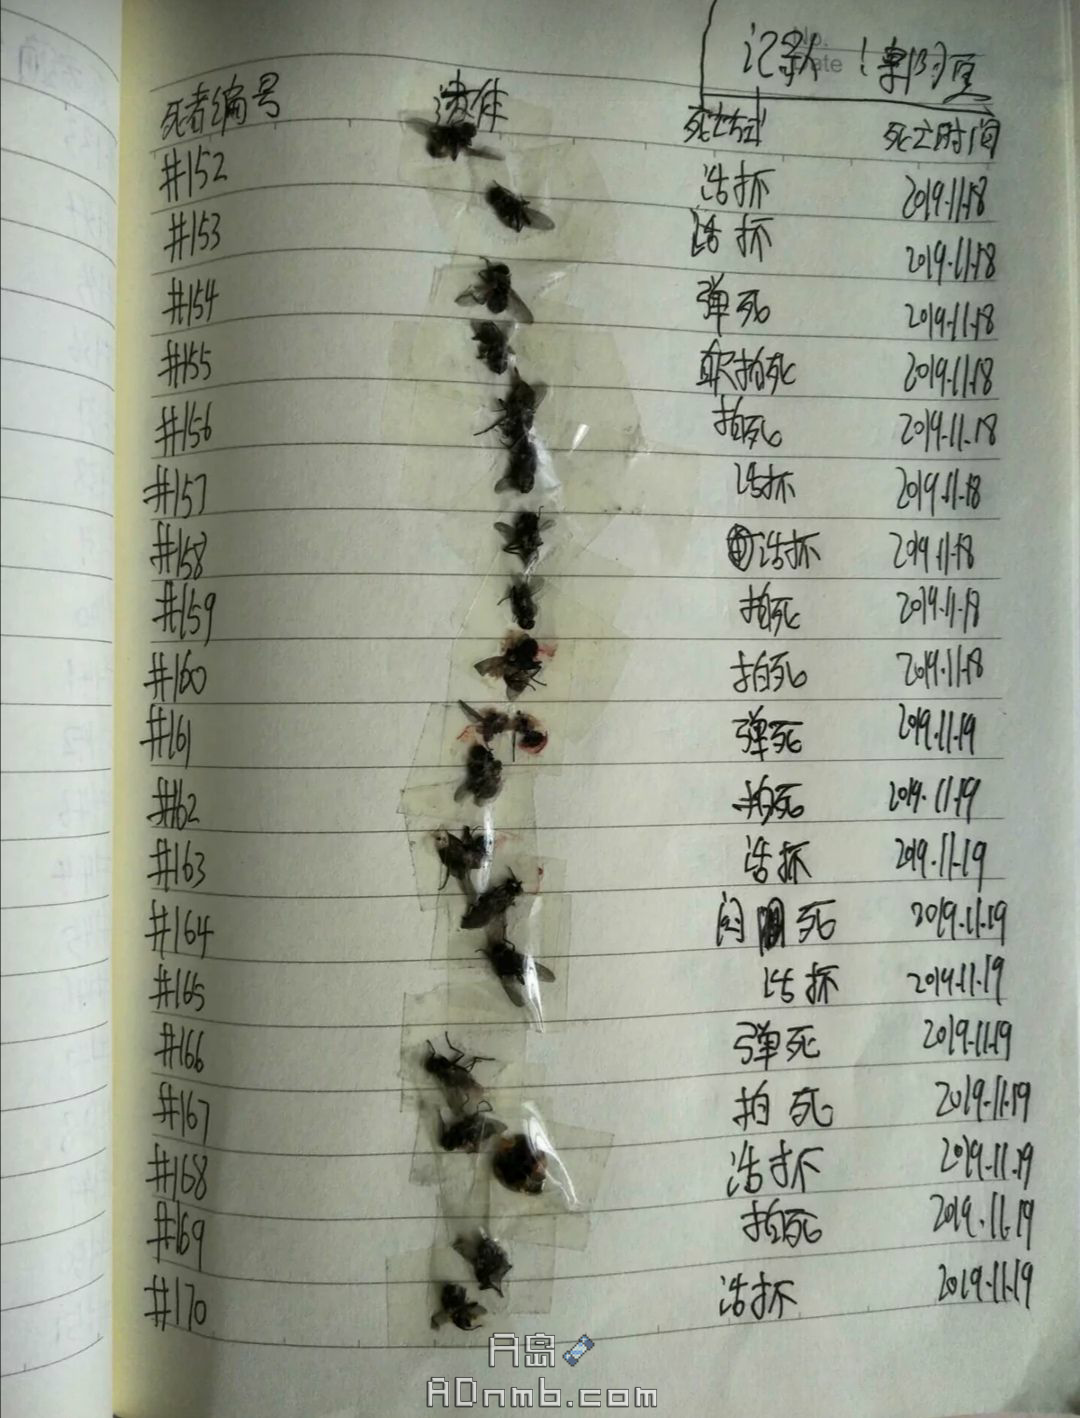 记录人：
No.
Date
死者编号 遗体 死亡方式 死亡时间
#152 活抓 2019.11.18
#153 活抓 2019.11.18
#154 弹死 2019.11.18
#155 拍死 2019.11.18
#156 拍死 2019.11.18
#157 活抓 2019.11.18
#158 活抓 2019.11.18
#159 拍死 2019.11.18
#160 拍死 2019.11.18
#161 弹死 2019.11.19
#162 拍死 2019.11.19
#163 活抓 2019.11.19
#164 闷死 2019.11.19
#165 活抓 2019.11.19
#166 弹死 2019.11.19
#167 拍死 2019.11.19
#168 活抓 2019.11.19
#169 拍死 2019.11.19
#170 活抓 2019.11.19
A岛
ADnmb.com